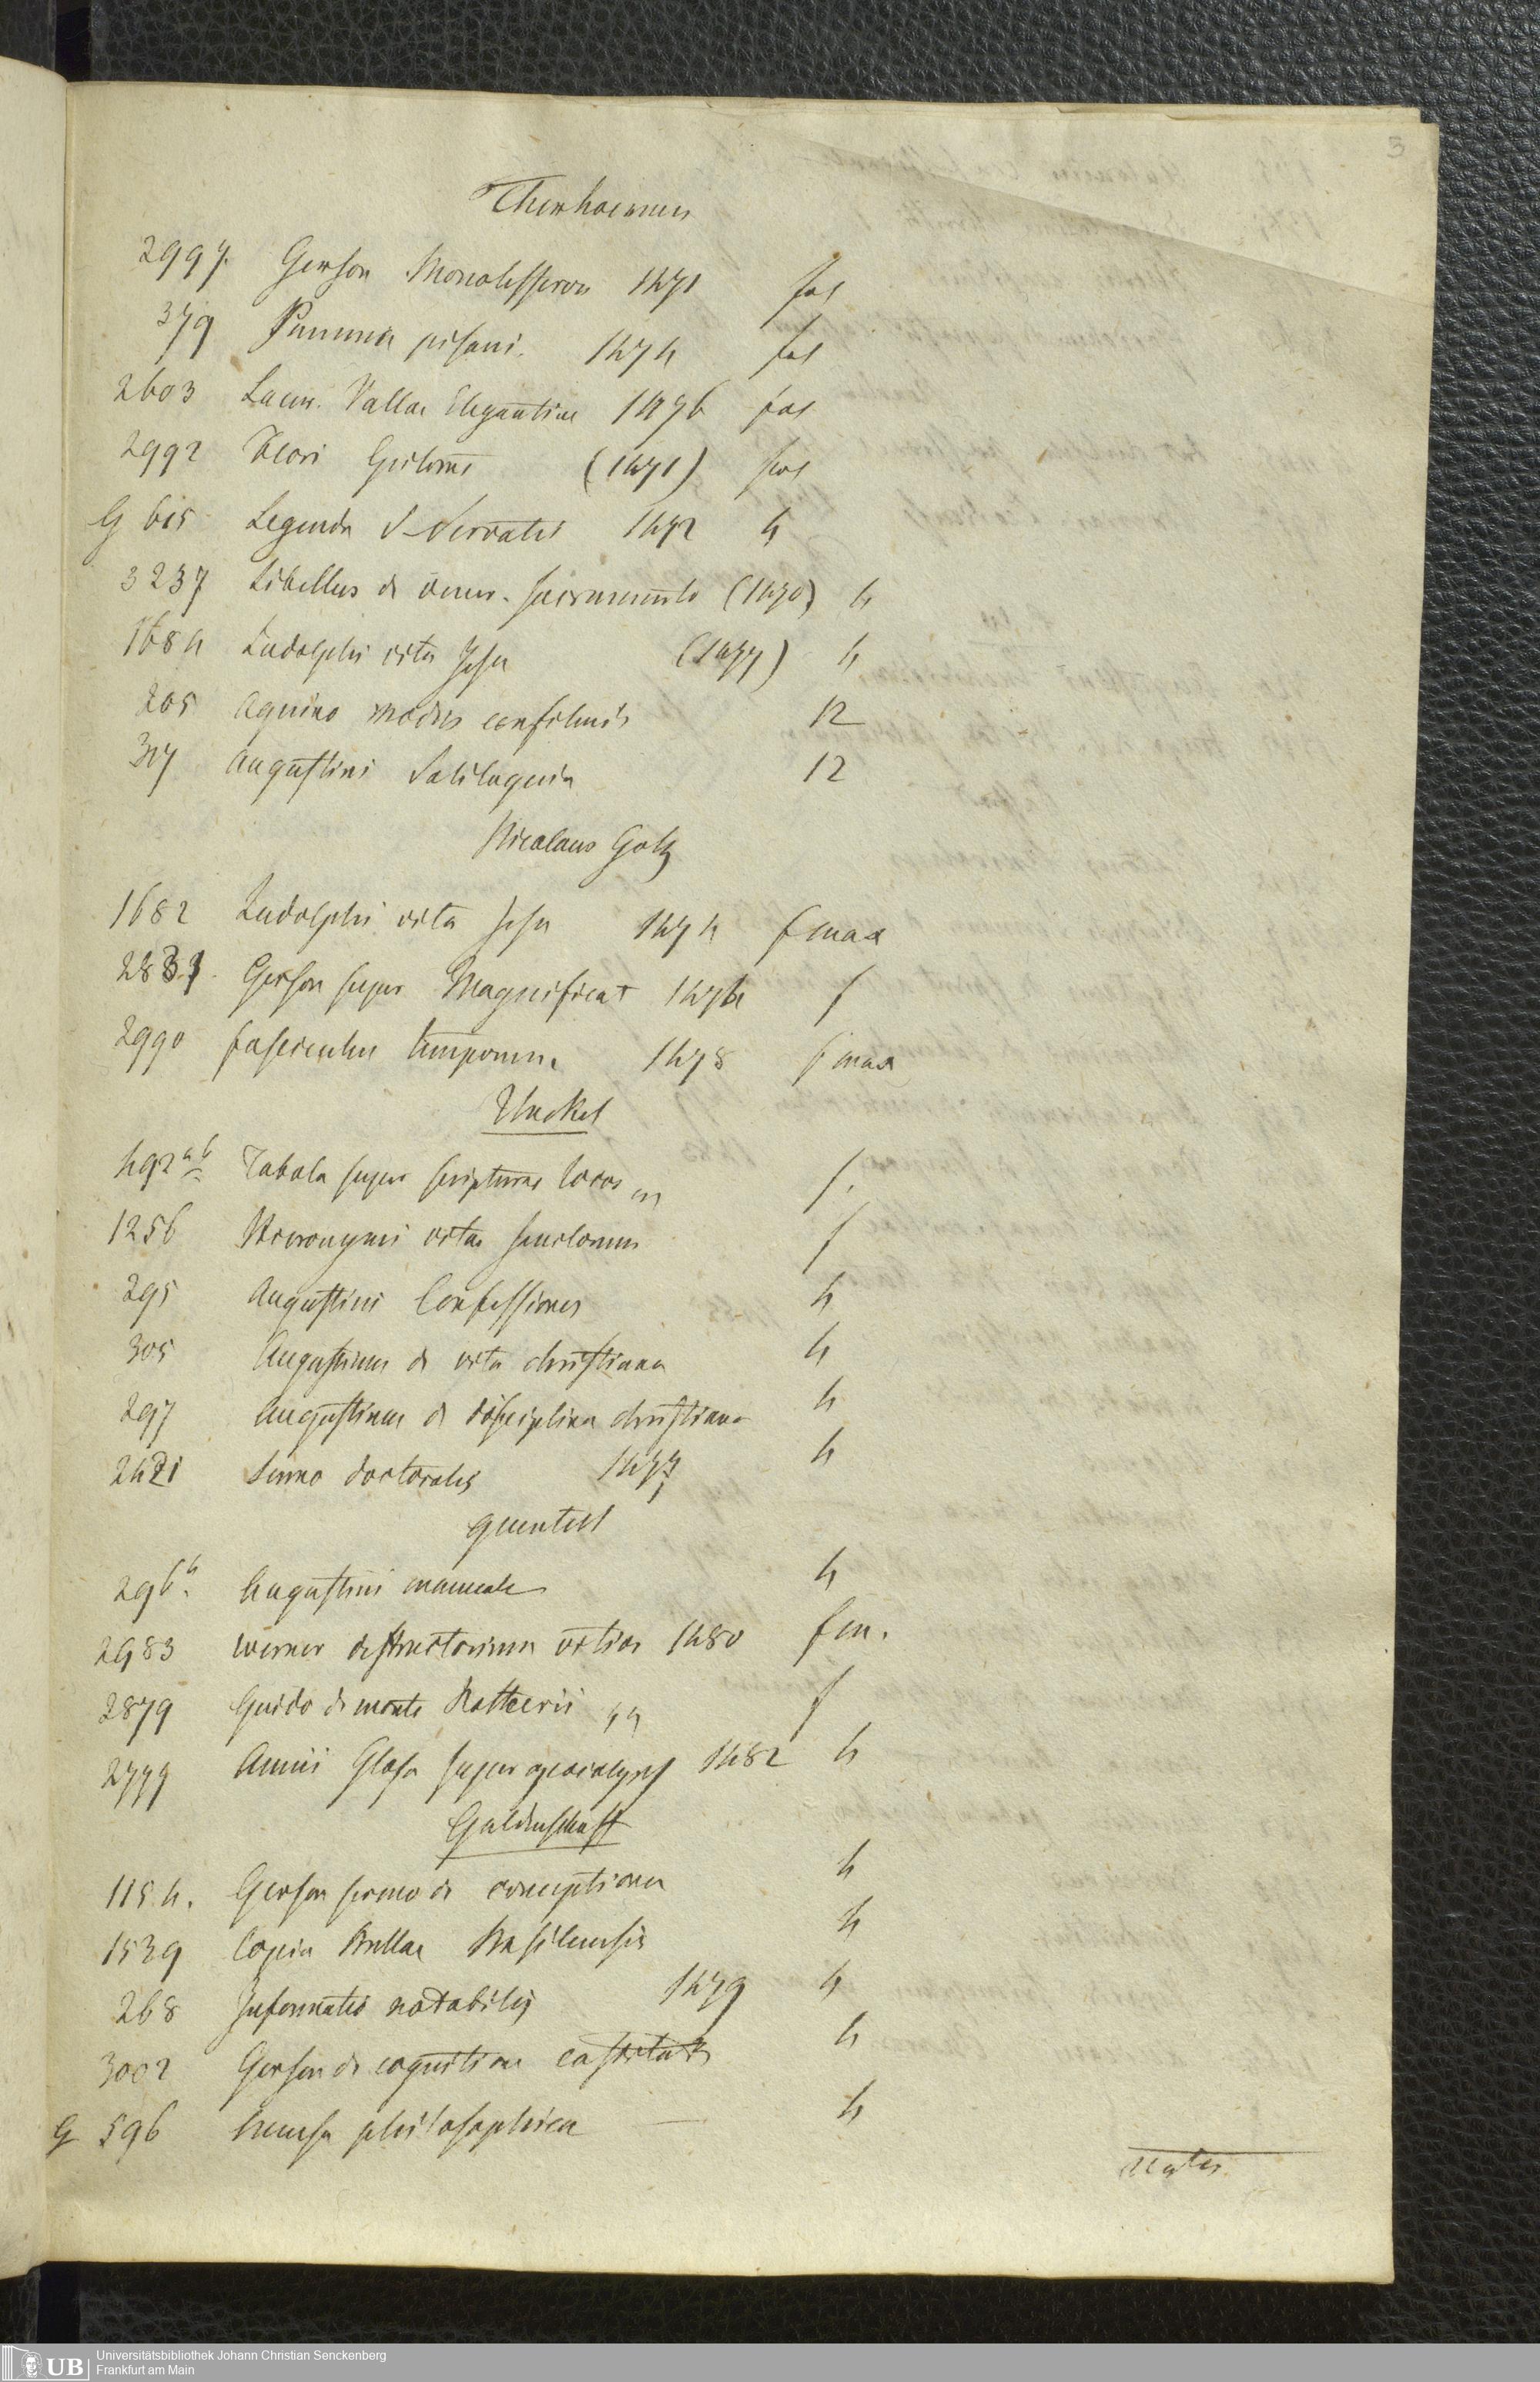 3
Therhoernen
2997. Gerson Monotessaron 1471 fol
379 Summa pisani. 1474 fol
2603 Laur. Vallae Elegantiae 1476 fol
2992 Flori (1471) fol
G 615 Legenda S Servatii 1472 4
3237 Libellus de vener. sacramento (1470) 4
1684 Ludolphi vita Jesu (1477) 4
205 Aquino modus confitendi 12
317 Augustini Soliloquia 12
Nicolaus Götz
1682 Ludolphi vita Jesu 1474 f max
Gerson super Magnificat f
2990 fasciculus temporum 1478 f max
Unckel
492 ab Tabula super scripturae locos m f.
1256 Hieronymi vitae sanctorum f
295 Augustini Confessiones 4
305 Augustinus de vita christiana 4
297 Augustinus de disciplina christiana 4
2421 Sermo doctoralis 1477 4
Quentell
296 b. Augustini manuale 4
2983 Werner destructorium vitior 1480 f m.
2879 Guido de monte Rotherii f
2779 Annii Glosa super apocalyps 1482 4
Guldenschaff
115.4. Gerson sermo de conceptione 4
1539 Copia Bullae Basileensis 4
268 Informatio notabilis 1479 4
3002 Gerson de cognitione castitatis 4
G 596 Mensa philosophica — 4
Universitätsbibliothek Johann Christian Senckenberg
Frankfurt am Main
UB